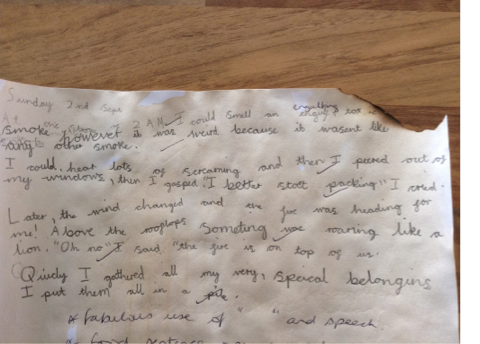 Sunday 2nd Sept
At one 2 AM I could smell an
smoke, however it was weird because it wasent like
any other smoke.
I could hear lots of screaming and then I peered out of
my windows, then I gasped. "I better start packing" I cried.
Later, the wind changed and the fire was heading for
me! Above the rooftops someting was roaring like a
lion. "Oh no" I said "the fire is on top of us.
Quicly I gathered all my very, spacal belongins
I put them all in a pile.
* fabulous use of " " and speech.